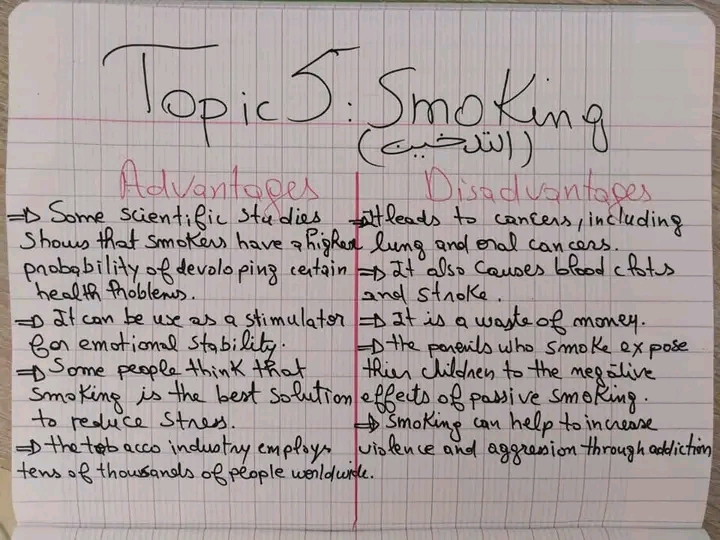 Topic 5: Smoking
(التدخين)
Advantages
=> Some scientific studies
shows that smokers have a higher
probability of devoloping certain
health Problems.
=> It can be use as a stimulator
for emotional stability.
=> Some people think that
smoking is the best solution
to reduce stress.
=> the tobacco industry employs
tens of thousands of people worldwide.
Disadvantages
=> It leads to cancers, including
lung and oral cancers.
=> It also causes blood clots
and stroke.
=> It is a waste of money.
=> the parents who smoke expose
thier children to the negative
effects of passive smoking.
=> smoking can help to increase
violence and aggression through addiction